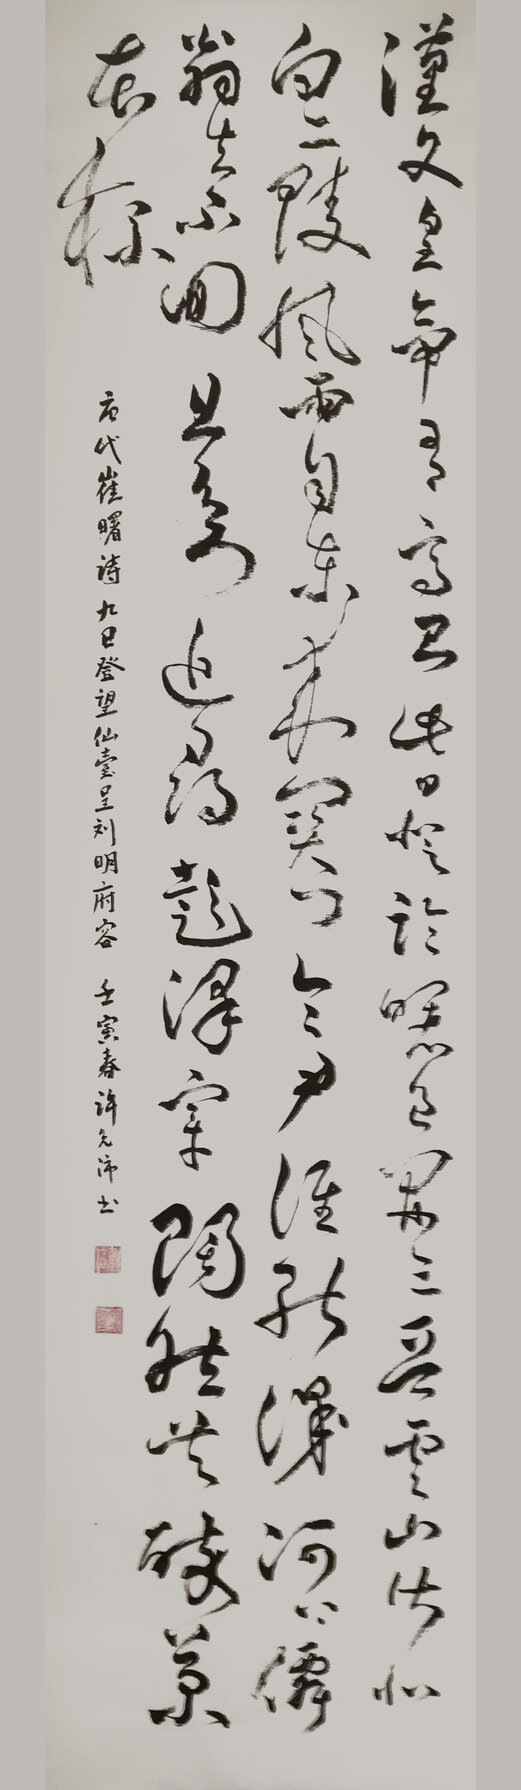 漢文皇帝有高台此日登臨曙色開三晉雲山皆北
向二陵風雨自東來關門令尹誰能識河上僊
翁去不回且欲近尋彭澤宰陶然共醉菊
花杯
唐代崔曙詩九日登望仙臺呈刘明府容 壬寅春許允沛书